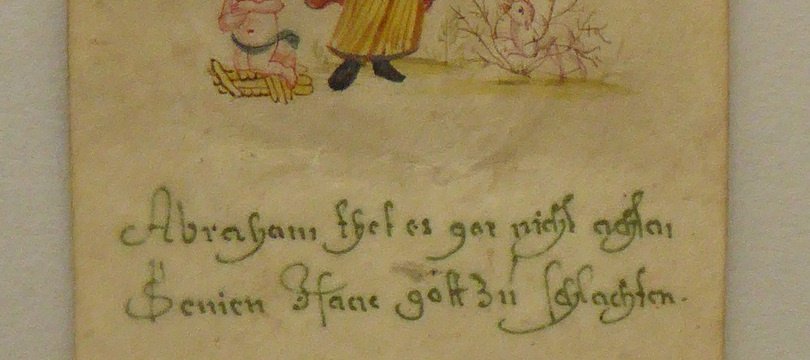 Abraham thet es gar nicht achten
Senien Isaac gött zu schlachten.